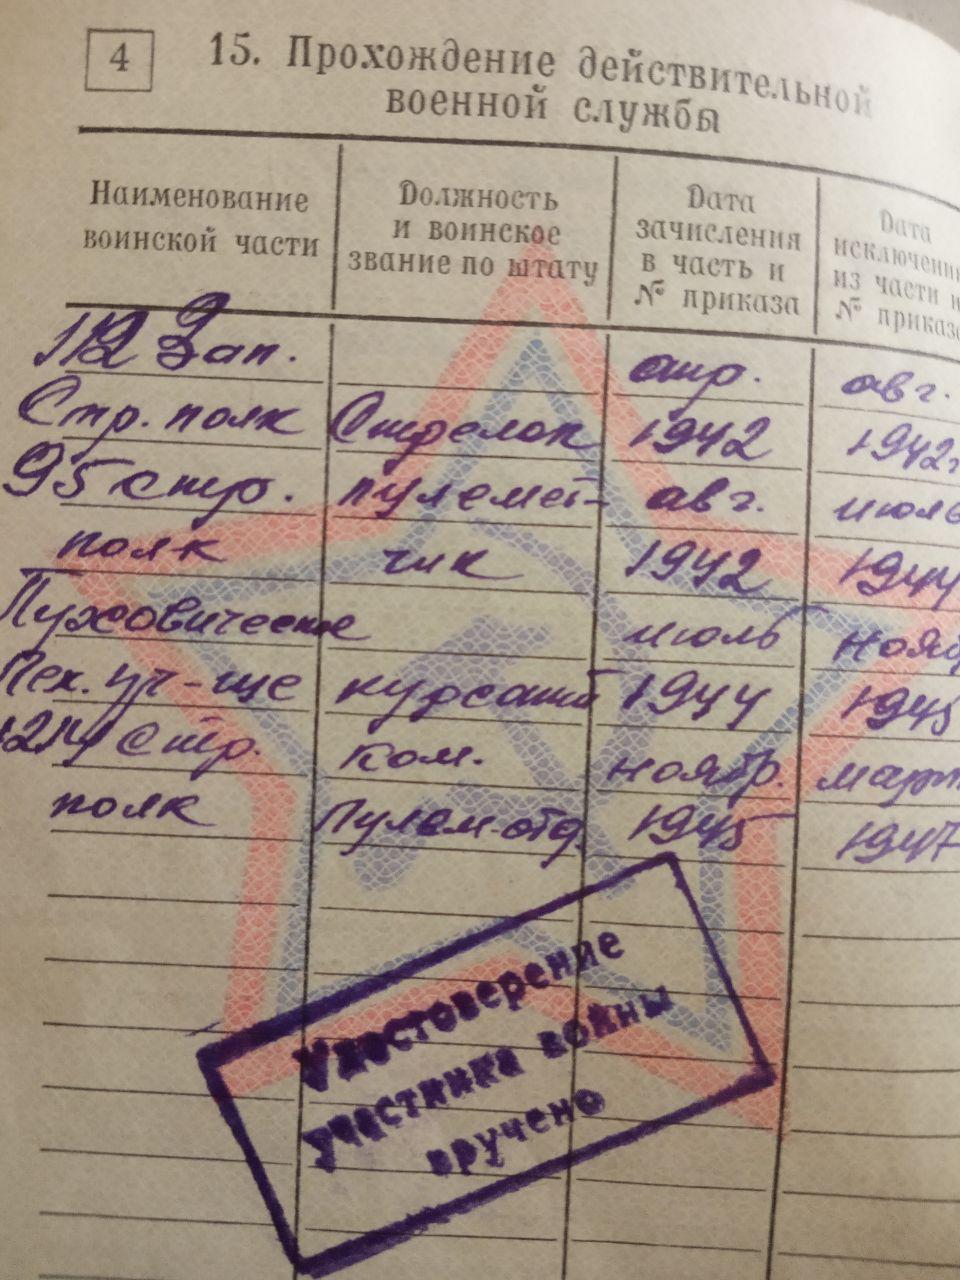 4
15. Прохождение действительной
военной службы
Наименование
воинской части
Должность
и воинское
звание по штату
Дата
зачисления
в часть и
№ приказа
Дата
исключени
из части и
№ приказа
Зап. апр. авг.
Стр. полк Стрелок 1942 1942г
95 стр. пулемёт- авг. июль
полк чик 1942 1944
Пуховическое июль нояб
Пех. уч-ще курсант 1944 1945
Стр. ком. ноябр. март
полк Пулем. отд. 1945 1947
Удостоверение
участника войны
вручено